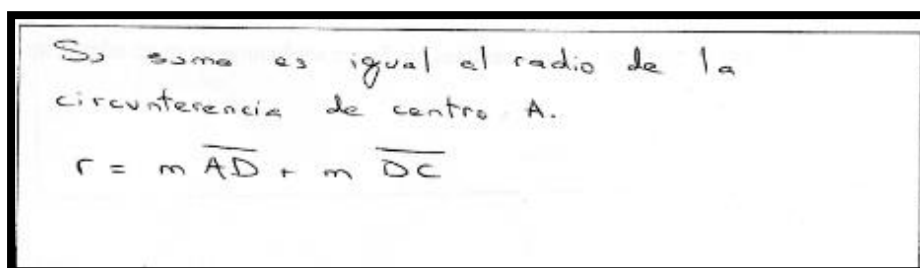 Su suma es igual al radio de la
circunferencia de centro A.
r = m \overline{AD} + m \overline{DC}